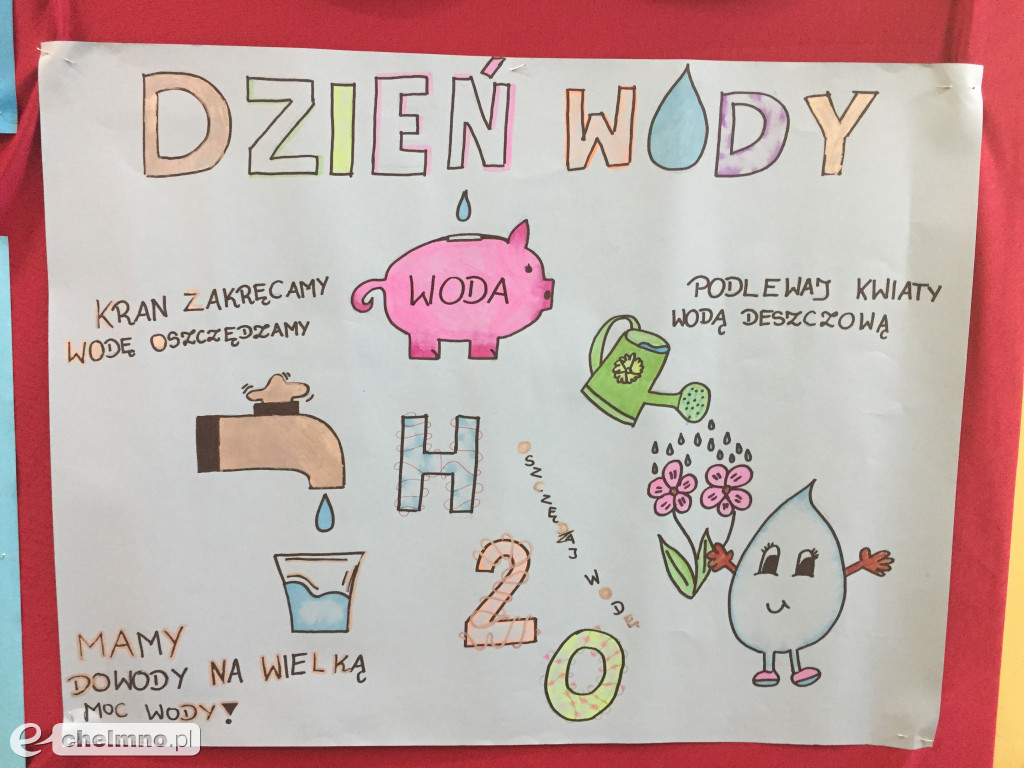 DZIEŃ WODY
WODA
KRAN ZAKRĘCAMY
WODĘ OSZCZĘDZAMY
PODLEWAJ KWIATY
WODĄ DESZCZOWĄ
H
2
O
OSZCZĘDZAJ WODĘ
MAMY
DOWODY NA WIELKĄ
MOC WODY!
e-chelmno.pl